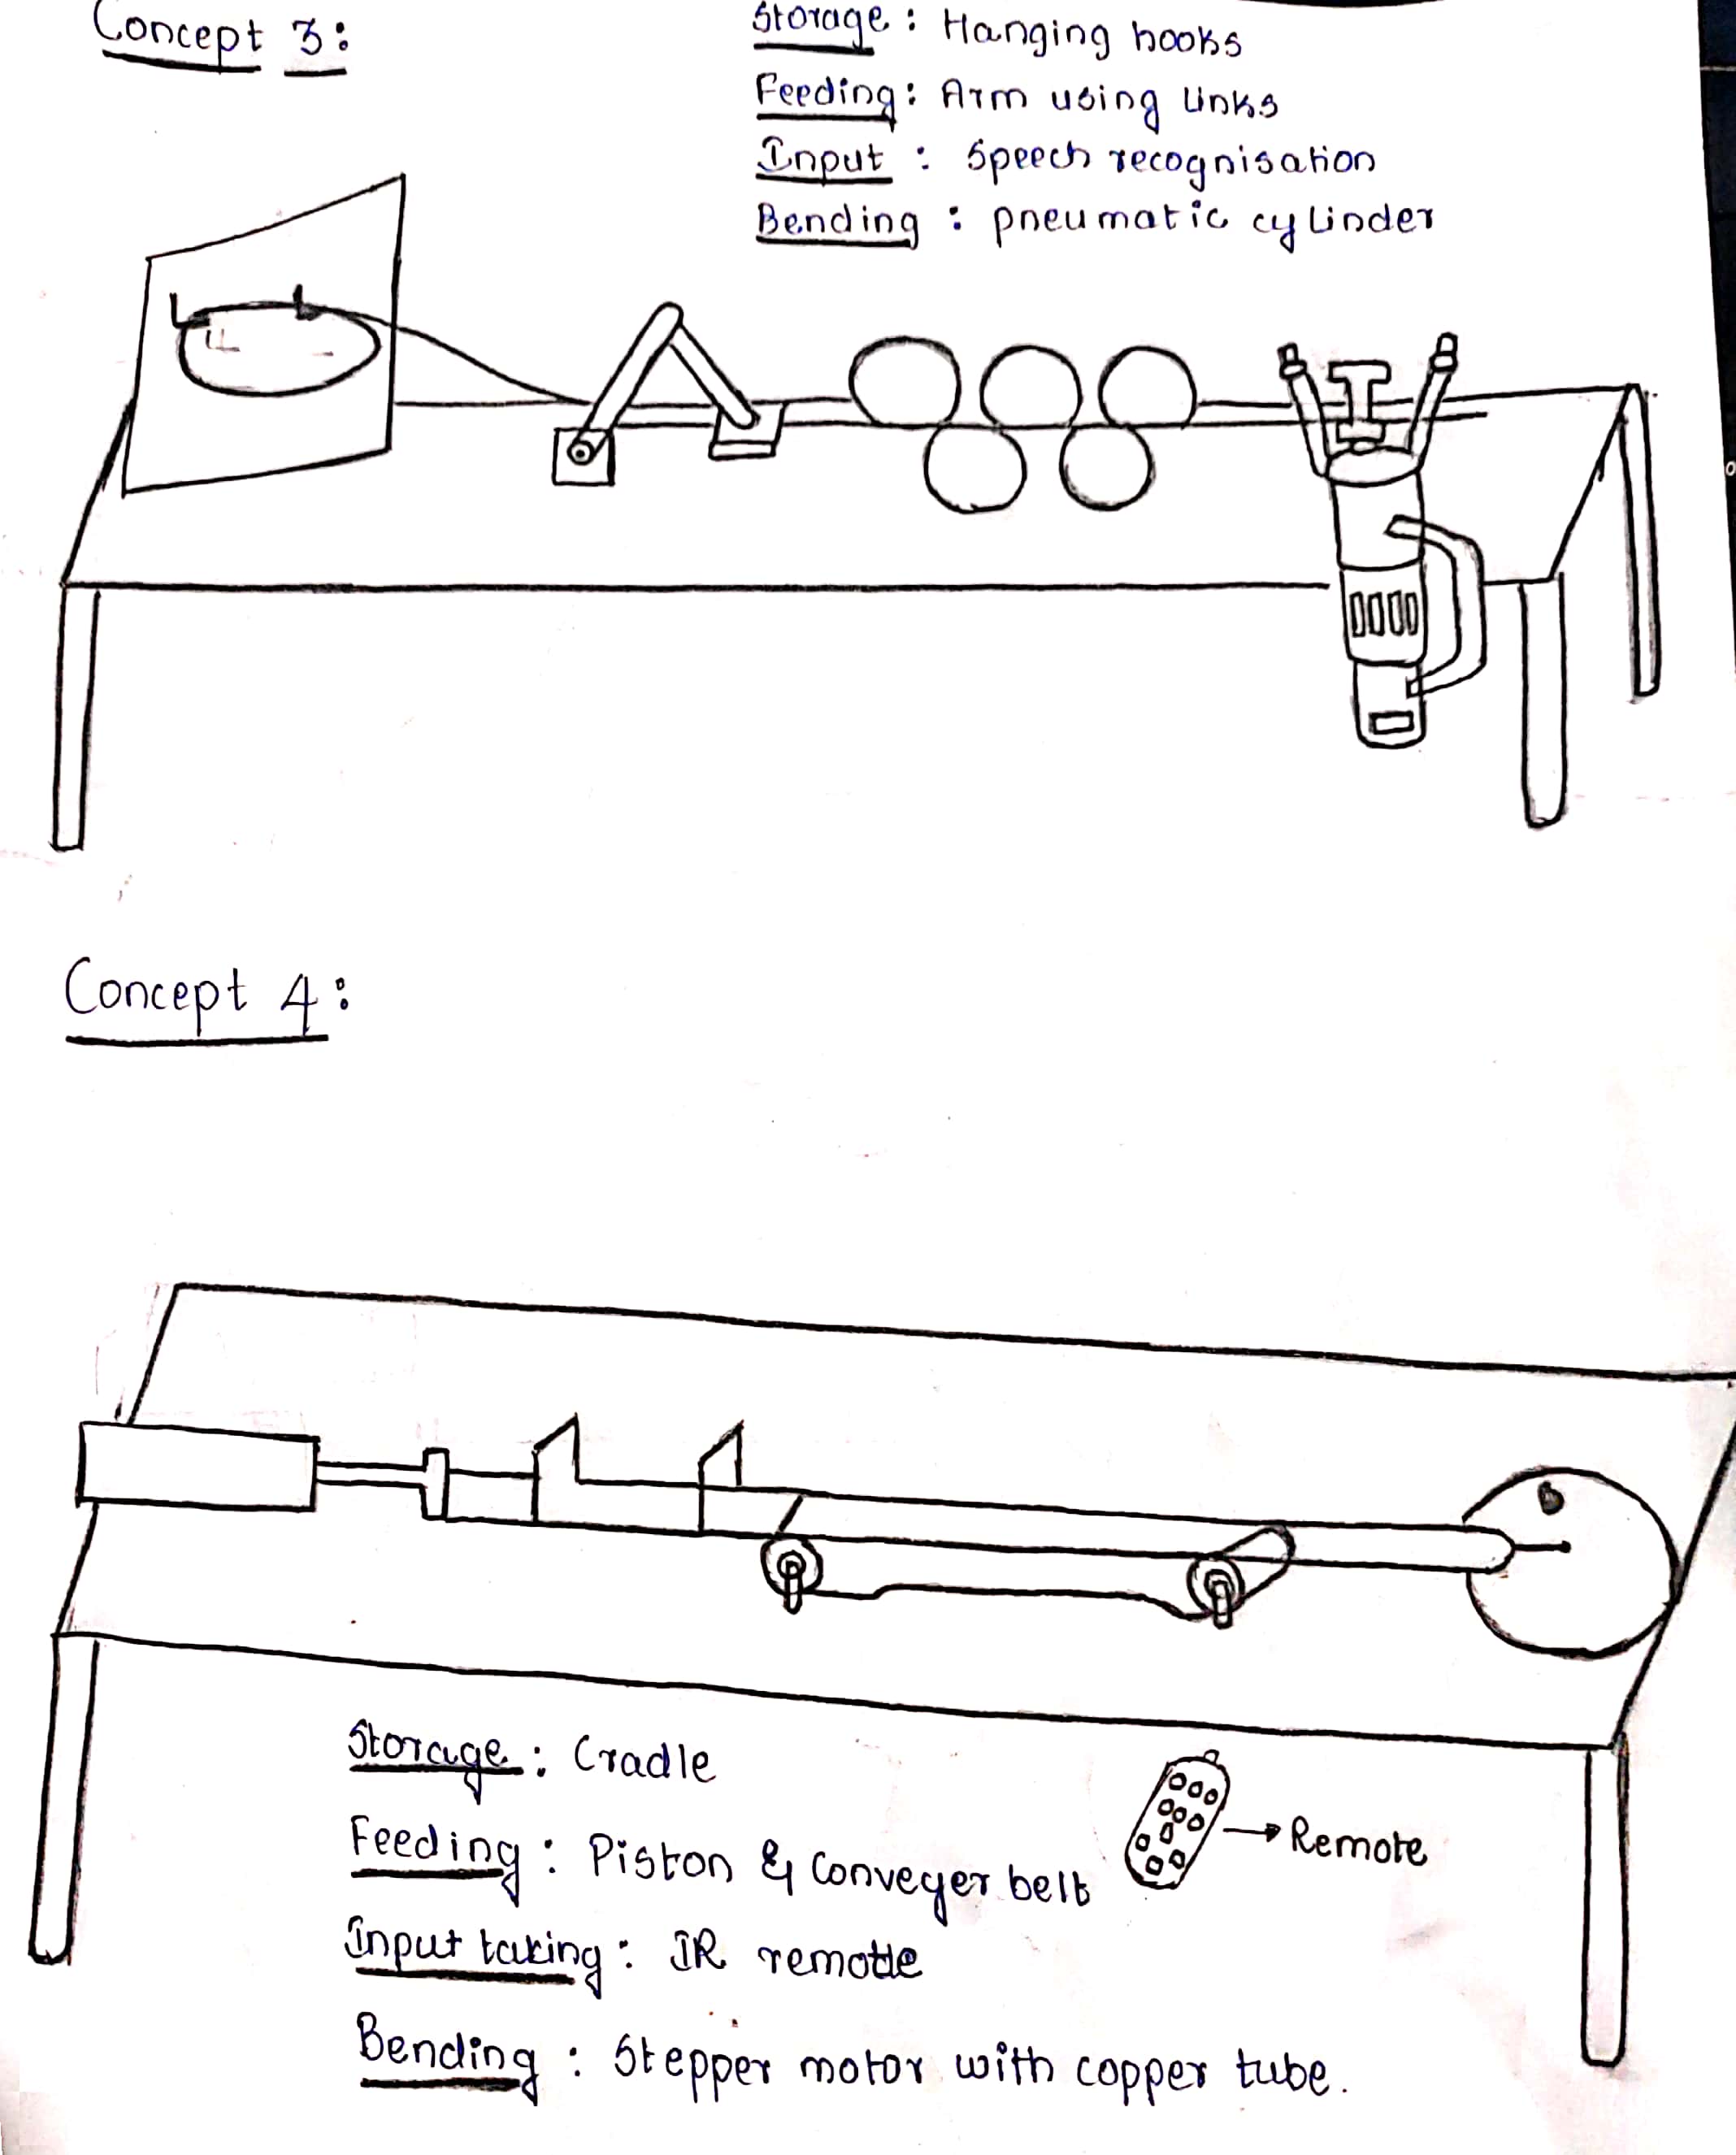 Concept 3:
Storage : Hanging hooks
Feeding : Arm using links
Input : Speech recognisation
Bending : pneumatic cylinder
Concept 4:
Storage : Cradle
Feeding : Piston & Conveyer belt
Remote
Input taking : IR remote
Bending : Stepper motor with copper tube.